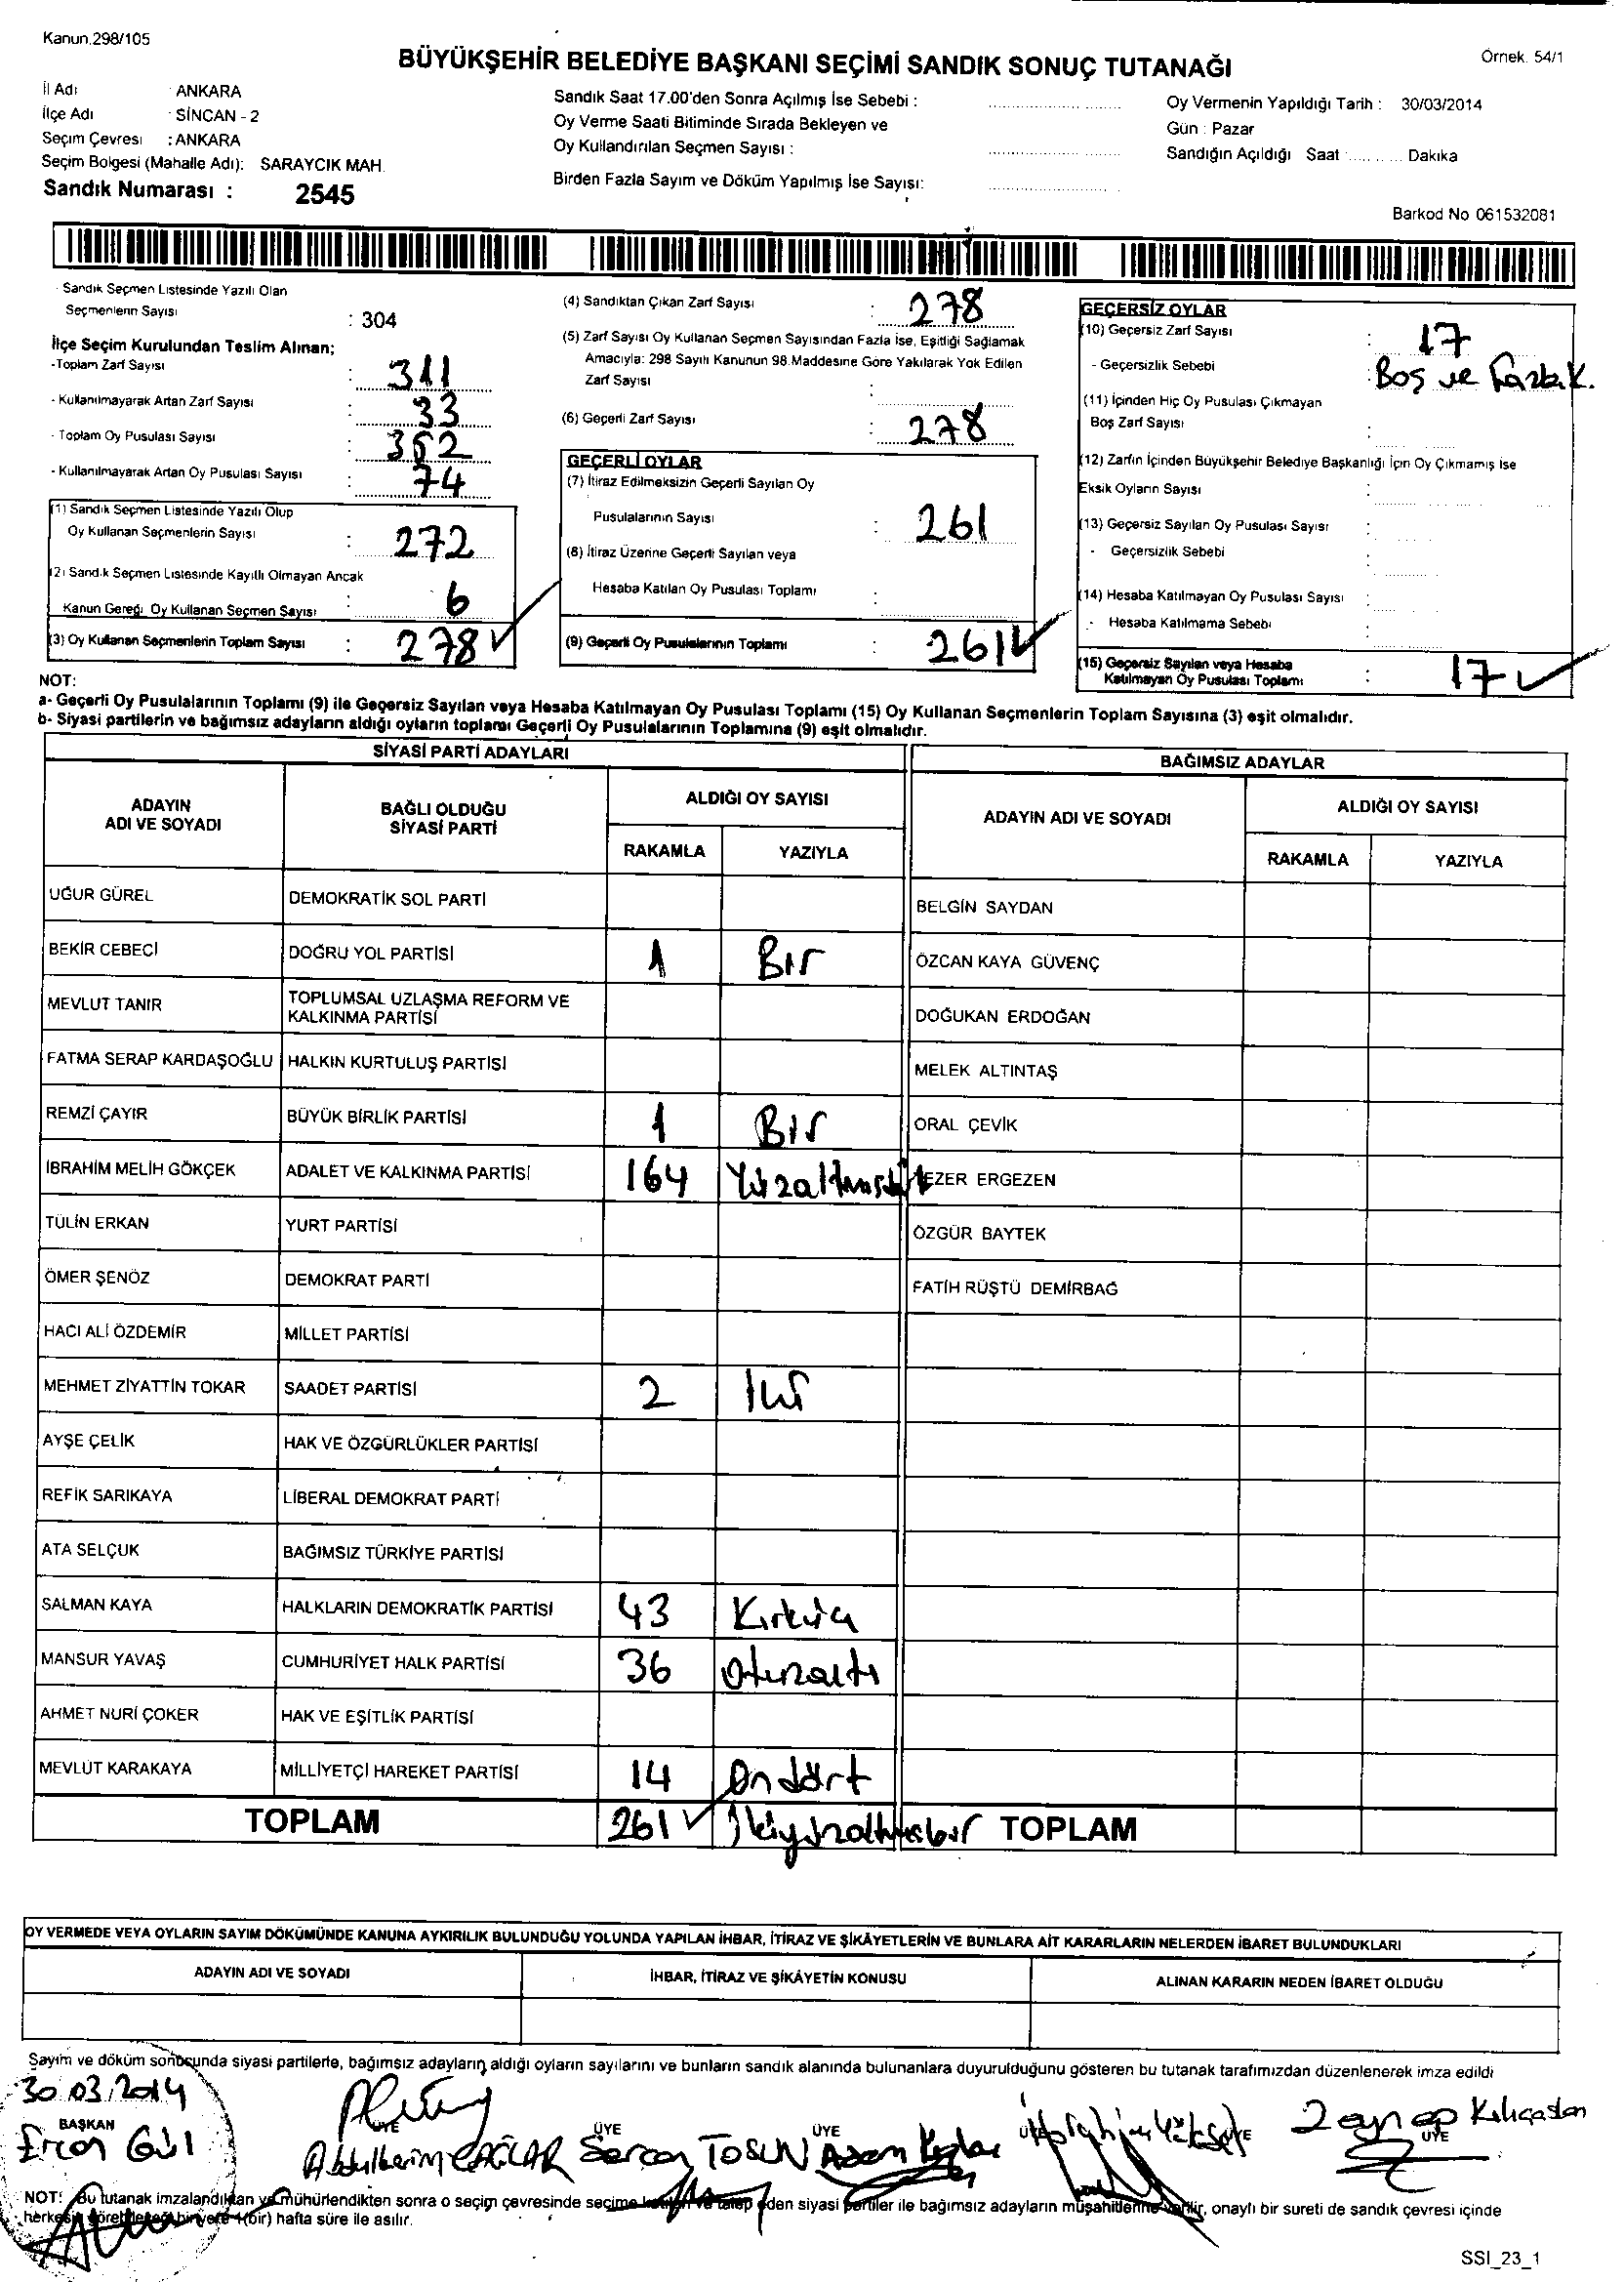 Kanun.298/105
BÜYÜKŞEHİR BELEDİYE BAŞKANI SEÇİMİ SANDIK SONUÇ TUTANAĞI
Örnek. 54/1
İl Adı : ANKARA
İlçe Adı : SİNCAN - 2
Seçim Çevresi : ANKARA
Seçim Bölgesi (Mahalle Adı): SARAYCIK MAH.
Sandık Numarası : 2545
Sandık Saat 17.00'den Sonra Açılmış İse Sebebi :
Oy Verme Saati Bitiminde Sırada Bekleyen ve
Oy Kullandırılan Seçmen Sayısı :
Birden Fazla Sayım ve Döküm Yapılmış İse Sayısı:
Oy Vermenin Yapıldığı Tarih : 30/03/2014
Gün : Pazar
Sandığın Açıldığı Saat : .......... Dakika
Barkod No 061532081
- Sandık Seçmen Listesinde Yazılı Olan
Seçmenlerin Sayısı : 304
İlçe Seçim Kurulundan Teslim Alınan;
-Toplam Zarf Sayısı : 311
- Kullanılmayarak Artan Zarf Sayısı : 33
- Toplam Oy Pusulası Sayısı : 352
- Kullanılmayarak Artan Oy Pusulası Sayısı : 74
(1) Sandık Seçmen Listesinde Yazılı Olup
Oy Kullanan Seçmenlerin Sayısı : 272
(2) Sandık Seçmen Listesinde Kayıtlı Olmayan Ancak
Kanun Gereği Oy Kullanan Seçmen Sayısı : 6
(3) Oy Kullanan Seçmenlerin Toplam Sayısı : 278
(4) Sandıktan Çıkan Zarf Sayısı : 278
(5) Zarf Sayısı Oy Kullanan Seçmen Sayısından Fazla İse, Eşitliği Sağlamak
Amacıyla: 298 Sayılı Kanunun 98.Maddesine Göre Yakılarak Yok Edilen
Zarf Sayısı :
(6) Geçerli Zarf Sayısı : 278
GEÇERLİ OYLAR
(7) İtiraz Edilmeksizin Geçerli Sayılan Oy
Pusulalarının Sayısı : 261
(8) İtiraz Üzerine Geçerli Sayılan veya
Hesaba Katılan Oy Pusulası Toplamı :
(9) Geçerli Oy Pusulalarının Toplamı : 261
GEÇERSİZ OYLAR
(10) Geçersiz Zarf Sayısı : 17
- Geçersizlik Sebebi : Boş ve
(11) İçinden Hiç Oy Pusulası Çıkmayan
Boş Zarf Sayısı :
(12) Zarfın İçinden Büyükşehir Belediye Başkanlığı İçin Oy Çıkmamış İse
Eksik Oyların Sayısı :
(13) Geçersiz Sayılan Oy Pusulası Sayısı :
- Geçersizlik Sebebi :
(14) Hesaba Katılmayan Oy Pusulası Sayısı :
- Hesaba Katılmama Sebebi :
(15) Geçersiz Sayılan veya Hesaba
Katılmayan Oy Pusulası Toplamı : 17
NOT:
a- Geçerli Oy Pusulalarının Toplamı (9) ile Geçersiz Sayılan veya Hesaba Katılmayan Oy Pusulası Toplamı (15) Oy Kullanan Seçmenlerin Toplam Sayısına (3) eşit olmalıdır.
b- Siyasi partilerin ve bağımsız adayların aldığı oyların toplamı Geçerli Oy Pusulalarının Toplamına (9) eşit olmalıdır.
SİYASİ PARTİ ADAYLARI
BAĞIMSIZ ADAYLAR
ADAYIN ADI VE SOYADI
BAĞLI OLDUĞU SİYASİ PARTİ
ALDIĞI OY SAYISI
RAKAMLA YAZIYLA
ADAYIN ADI VE SOYADI
ALDIĞI OY SAYISI
RAKAMLA YAZIYLA
UĞUR GÜREL DEMOKRATİK SOL PARTİ BELGİN SAYDAN
BEKİR CEBECİ DOĞRU YOL PARTİSİ 1 Bir ÖZCAN KAYA GÜVENÇ
MEVLUT TANIR TOPLUMSAL UZLAŞMA REFORM VE KALKINMA PARTİSİ DOĞUKAN ERDOĞAN
FATMA SERAP KARDAŞOĞLU HALKIN KURTULUŞ PARTİSİ MELEK ALTINTAŞ
REMZİ ÇAYIR BÜYÜK BİRLİK PARTİSİ 1 Bir ORAL ÇEVİK
İBRAHİM MELİH GÖKÇEK ADALET VE KALKINMA PARTİSİ 164 Yüzaltmışdört EZER ERGEZEN
TÜLİN ERKAN YURT PARTİSİ ÖZGÜR BAYTEK
ÖMER ŞENÖZ DEMOKRAT PARTİ FATİH RÜŞTÜ DEMİRBAĞ
HACI ALİ ÖZDEMİR MİLLET PARTİSİ
MEHMET ZİYATTİN TOKAR SAADET PARTİSİ 2 İki
AYŞE ÇELİK HAK VE ÖZGÜRLÜKLER PARTİSİ
REFİK SARIKAYA LİBERAL DEMOKRAT PARTİ
ATA SELÇUK BAĞIMSIZ TÜRKİYE PARTİSİ
SALMAN KAYA HALKLARIN DEMOKRATİK PARTİSİ 43 Kırküç
MANSUR YAVAŞ CUMHURİYET HALK PARTİSİ 36 Otuzaltı
AHMET NURİ ÇOKER HAK VE EŞİTLİK PARTİSİ
MEVLÜT KARAKAYA MİLLİYETÇİ HAREKET PARTİSİ 14 Ondört
TOPLAM 261 İkiyüzaltmışbir TOPLAM
OY VERMEDE VEYA OYLARIN SAYIM DÖKÜMÜNDE KANUNA AYKIRILIK BULUNDUĞU YOLUNDA YAPILAN İHBAR, İTİRAZ VE ŞİKÂYETLERİN VE BUNLARA AİT KARARLARIN NELERDEN İBARET BULUNDUKLARI
ADAYIN ADI VE SOYADI İHBAR, İTİRAZ VE ŞİKÂYETİN KONUSU ALINAN KARARIN NEDEN İBARET OLDUĞU
Sayım ve döküm sonucunda siyasi partilerle, bağımsız adayların aldığı oyların sayılarını ve bunların sandık alanında bulunanlara duyurulduğunu gösteren bu tutanak tarafımızdan düzenlenerek imza edildi
30.03.2014
BAŞKAN ÜYE ÜYE ÜYE ÜYE ÜYE
Ercan Gül Abdulkerim ÇAĞLAR Sercan TOSUN Adem Zeynep Kılıçaslan
NOT: Bu tutanak imzalandıktan ve mühürlendikten sonra o seçim çevresinde seçime katılan ve talep eden siyasi partiler ile bağımsız adayların müşahitlerine verilir, onaylı bir sureti de sandık çevresi içinde
herkesin görebileceği bir yere 1 (bir) hafta süre ile asılır.
SSI_23_1